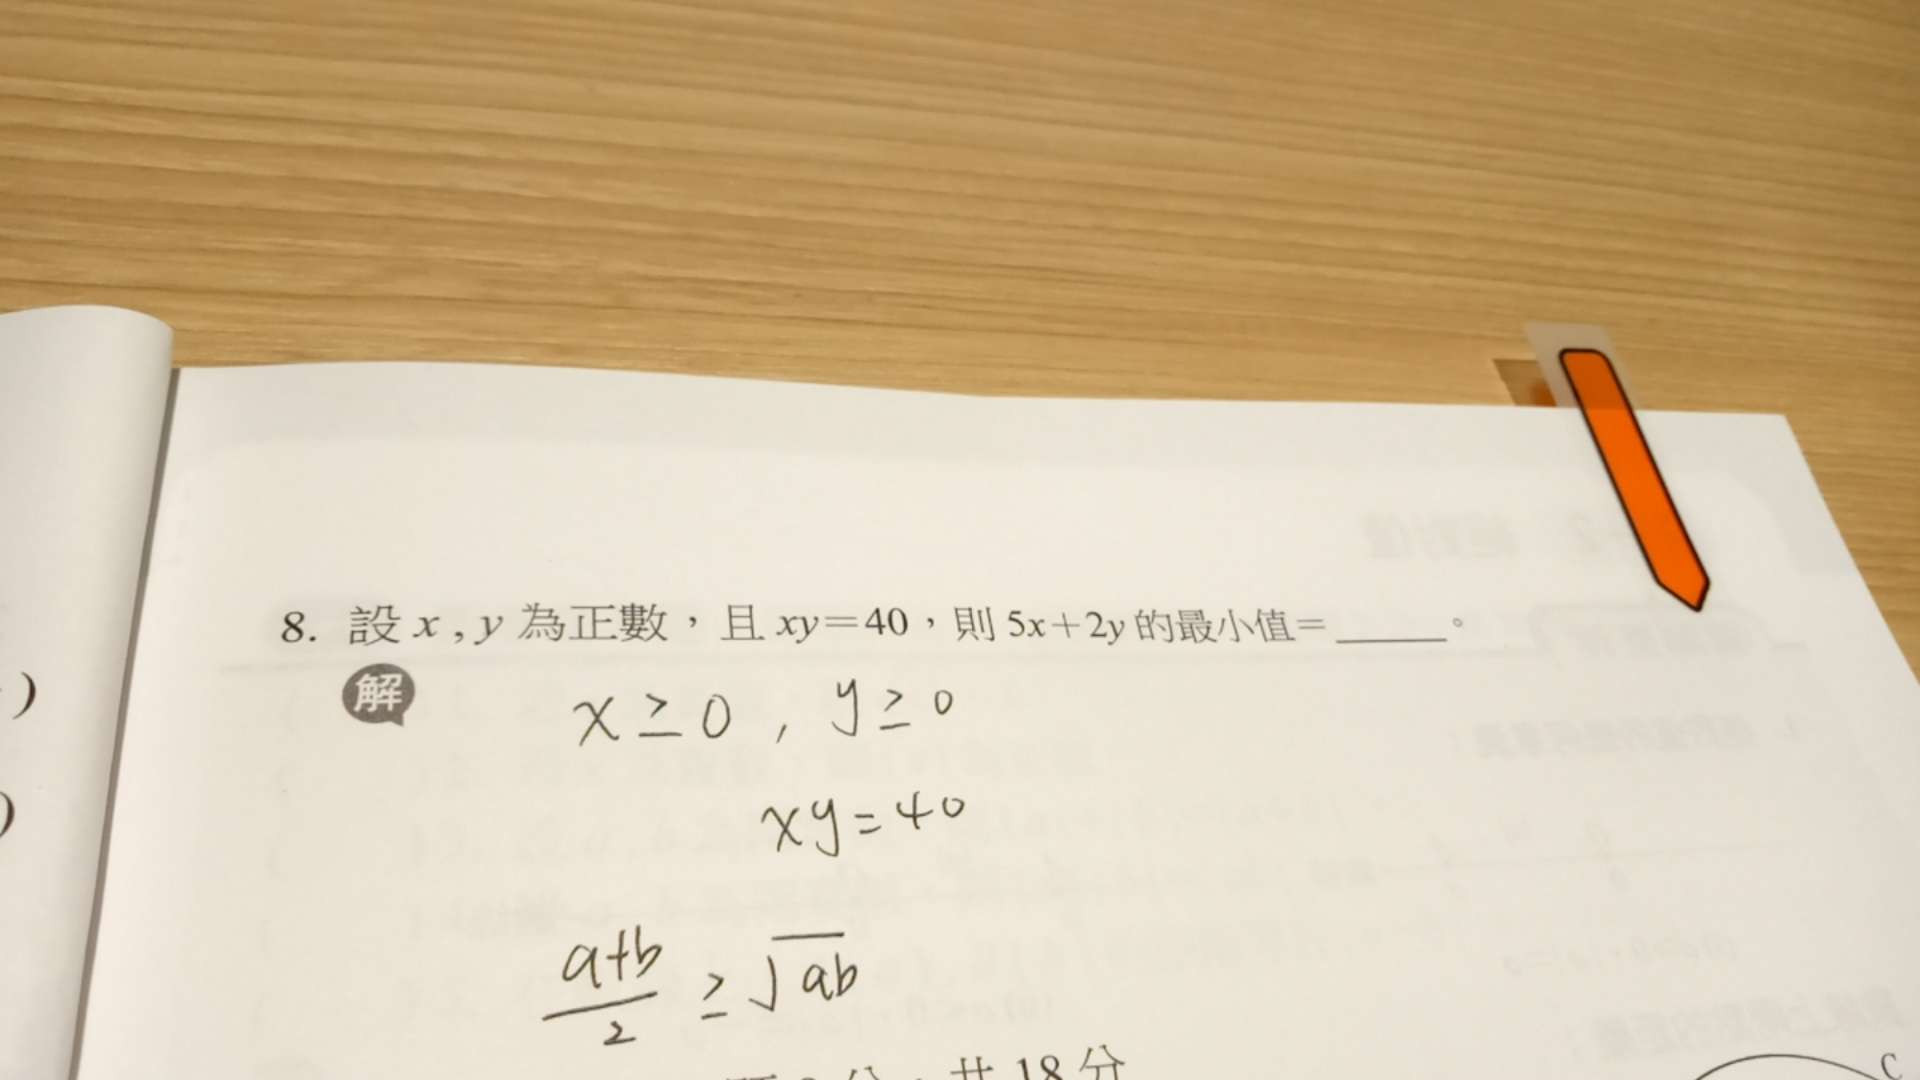 8. 設 x , y 為正數，且 xy=40，則 5x+2y 的最小值=_____。
解
x ≥ 0 , y ≥ 0
xy = 40
a+b
2
≥ √ab
共 18 分
C
)
)